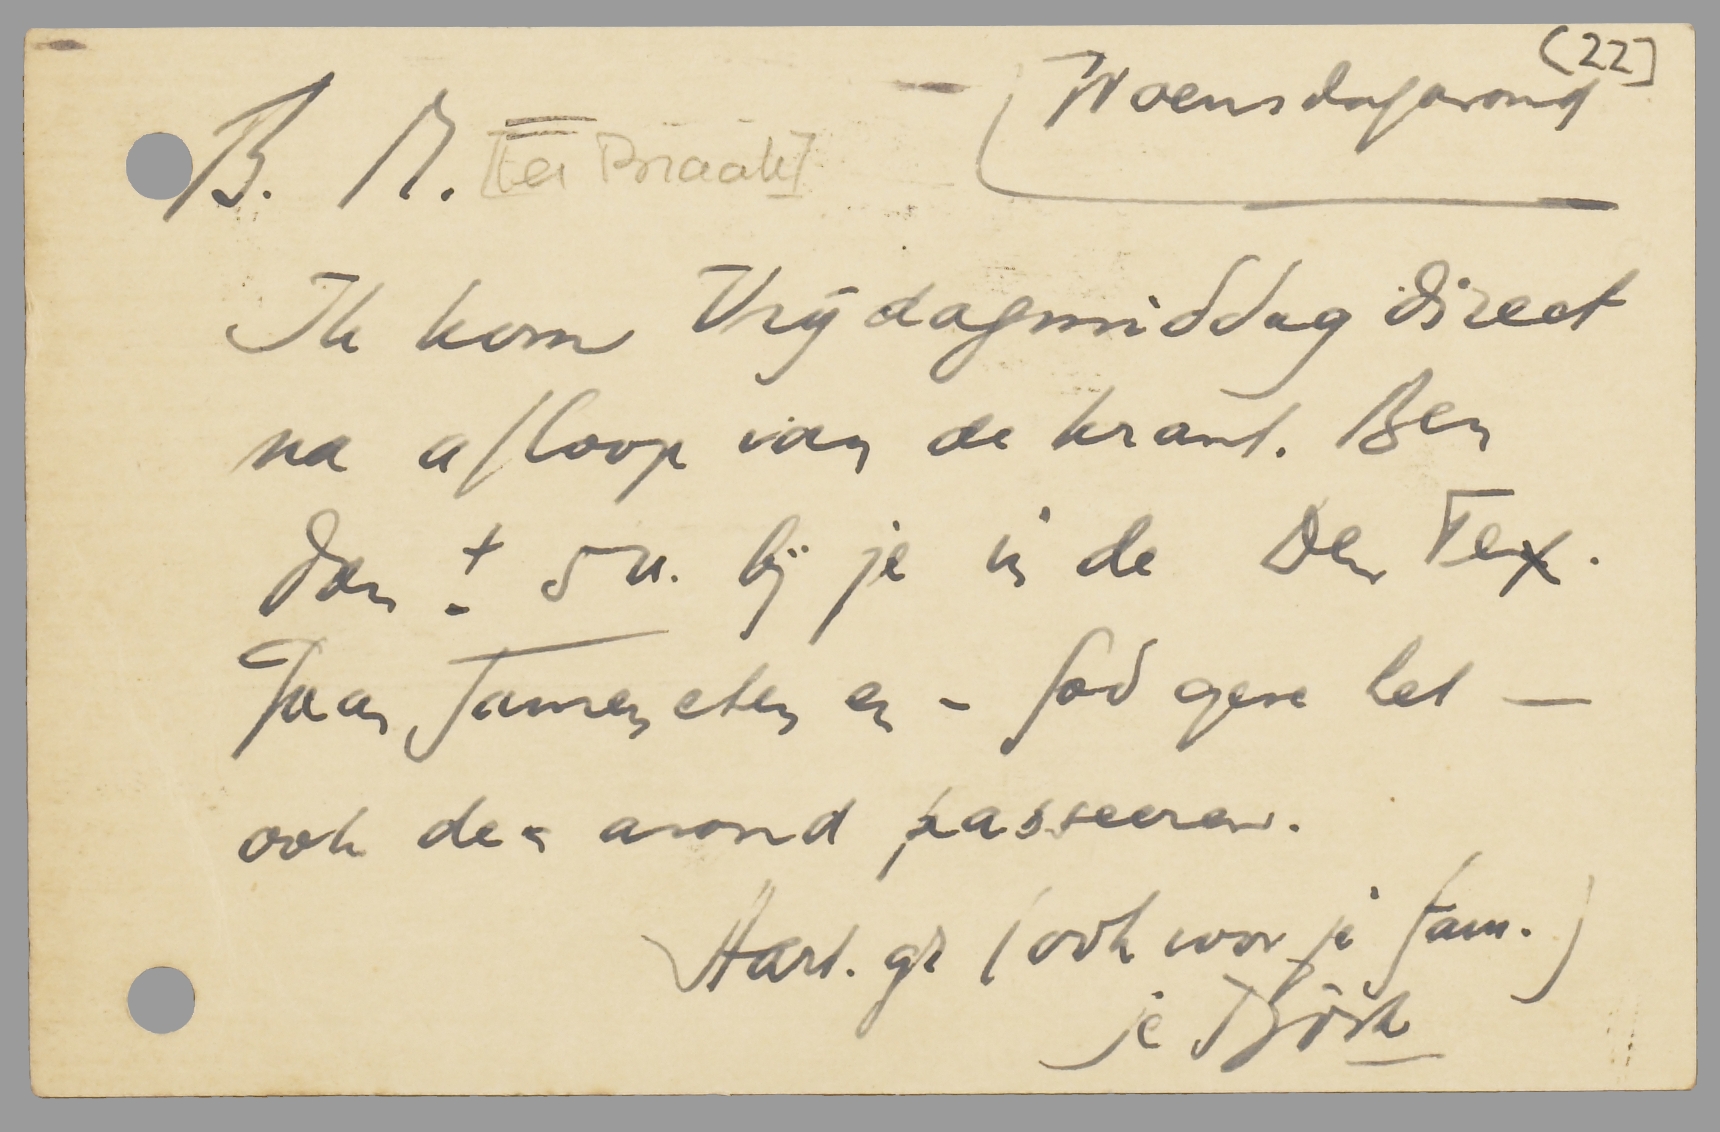 [22]
Woensdagavond
B. M. [ter Braak]
Ik kom Vrijdagmiddag direct
na afloop van de krant. Ben
dan ± 5 u. bij je in de Den Tex.
Gaan samen eten en – God geve het –
ook den avond passeeren.
Hart. gr (ook voor je fam.)
je